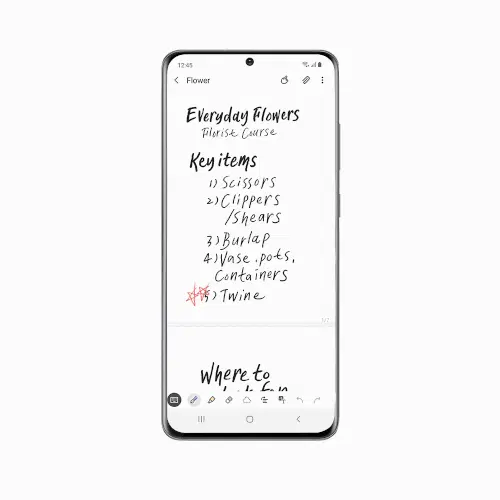 12:45
Flower
Everyday Flowers
Florist Course
Key items
1) Scissors
2) Clippers
/Shears
3) Burlap
4) Vase, pots,
Containers
5) Twine
1/2
Where to
look for